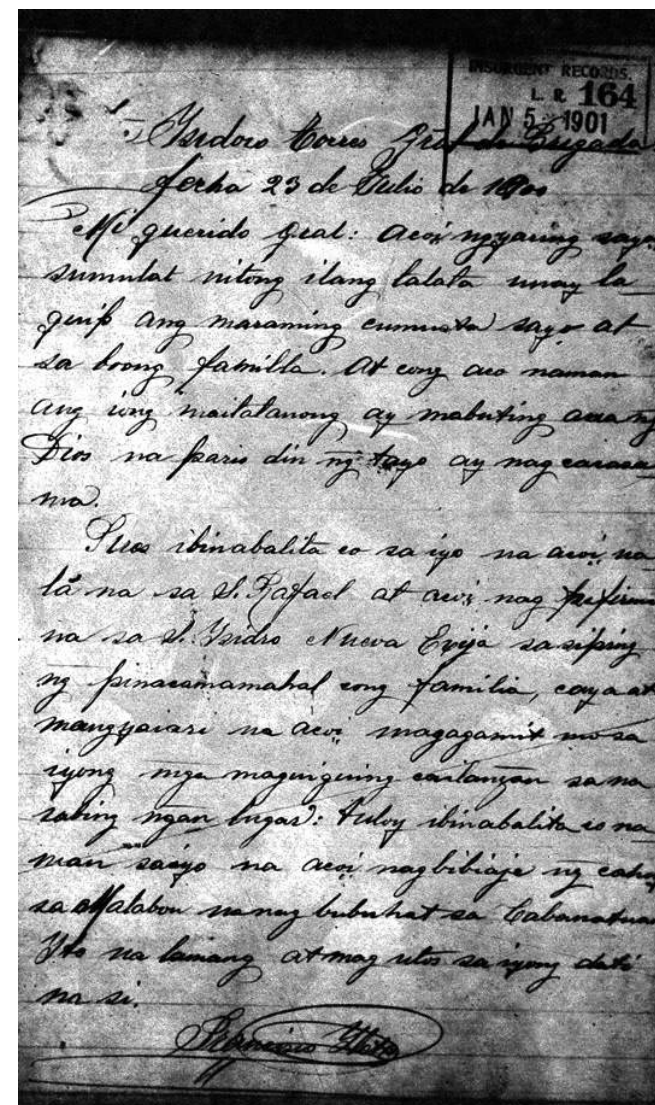 INSURGENT RECORDS.
L. R. 164
JAN 5 - 1901
Isidoro Torres Gral de Brigada
fecha 23 de Julio de 1900
Mi querido Gral: acoi ngyaring
sumulat nitong ilang talata unay la
quip ang maraming cumusta sayo at
sa boong familla. At cong aco naman
ang iyong maitatanong ay mabuting aua ng
Dios na paris din ng tayo ay nag casasa
ma.
Pues ibinabalita co sa iyo na acoi na
lá na sa S. Rafael at acoi nag
na sa S. Ysidro Nueva Ecija sa siping
ng pinacamamahal cong familia, caya at
mangyaiari na acoi magagamit mo sa
iyong mga maguiguing cailangan sa na
sabing ngan lugar: tuloy ibinabalita co na
man saiyo na acoi nagbibiaje ng
sa Malabon na nag bubuhat sa Cabanatuan
Yto na lamang at mag utos sa iyong dati
na si.
Francisco